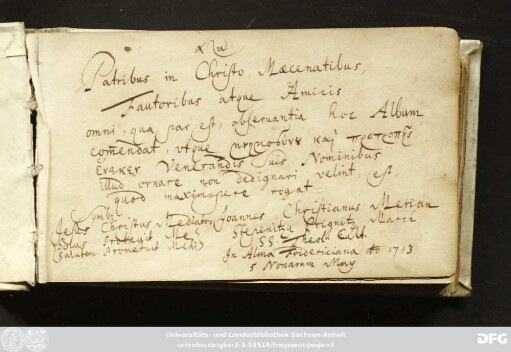 Patribus in Christo, Mæcenatibus,
Fautoribus atque Amicis
omni, qua par est, observantia hoc Album
com̄endat, utque μνημοσύνου καὶ προτροπῆς
ἕνεκεν Venerandis Suis Nominibus
illud ornare non dedignari velint, est
quod maximopere rogat
Symbol
Jesus Christus Mediator
Solus Me
Salutem Mihi
Joannes Christianus Merian
March
SS. Theol. Cult.
In Alma Fridericiana Aō 1713
5 Nonarum May
Universitäts- und Landesbibliothek Sachsen-Anhalt
urn:nbn:de:gbv:3:3-55516/fragment/page=3
DFG